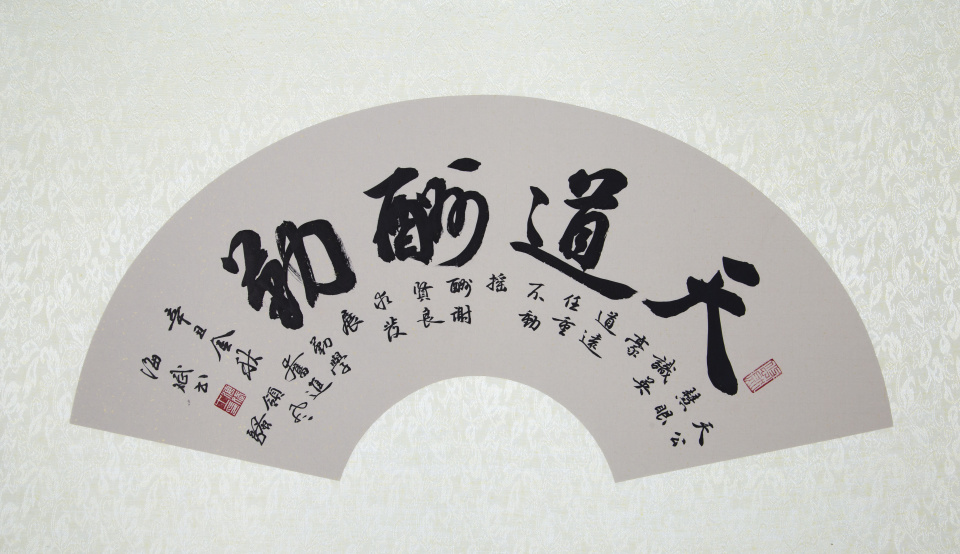 天道酬勤
天公
慧眼
識英
豪
道遠
任重
不動
摇
酬謝
賢良
求發
展
勤學
奮進
領风
騷
辛丑金秋
海斌书